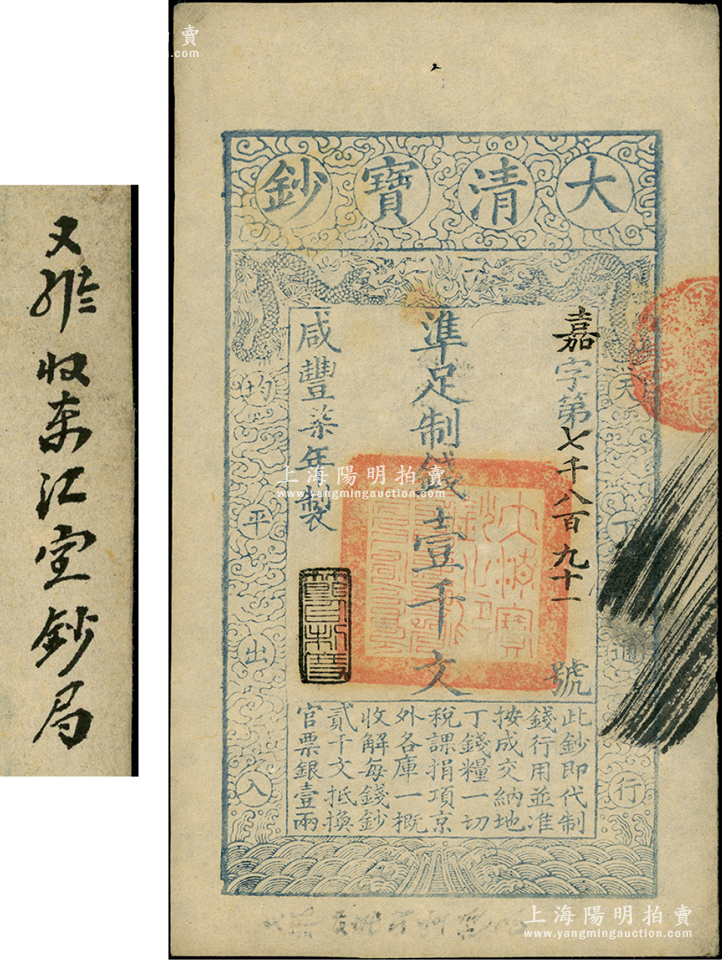 大清寶鈔
天下通行
嘉字第七千八百九十一號
準足制錢壹千文
咸豐柒年製
均平出入
此鈔即代制
錢行用並准
按成交納地
丁錢糧一切
稅課捐項京
外各庫一概
收解每錢鈔
貳千文抵換
官票銀壹兩
收東江室鈔局
上海陽明拍賣
www.yangmingauction.com
上海陽明拍賣
www.yangmingauction.com